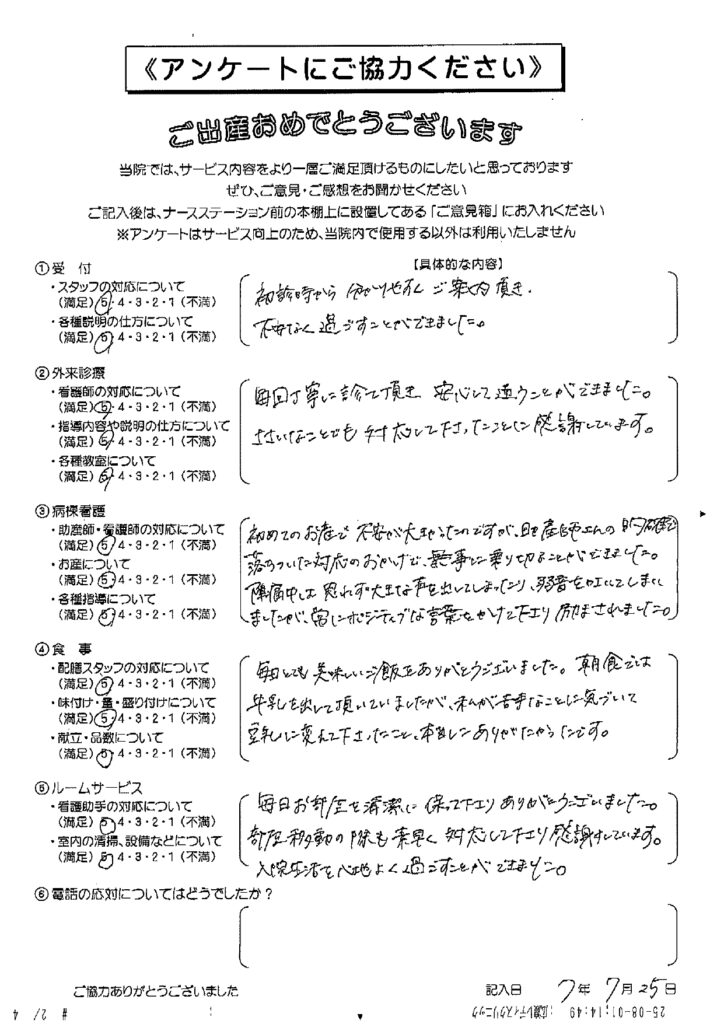 《アンケートにご協力ください》
ご出産おめでとうございます
当院では、サービス内容をより一層ご満足頂けるものにしたいと思っております
ぜひ、ご意見・ご感想をお聞かせください
ご記入後は、ナースステーション前の本棚上に設置してある「ご意見箱」にお入れください
※アンケートはサービス向上のため、当院内で使用する以外は利用いたしません
①受 付
【具体的な内容】
・スタッフの対応について
(満足) 5・4・3・2・1 (不満)
・各種説明の仕方について
(満足) 5・4・3・2・1 (不満)
初診時から 分かりやすく ご案内頂き、
不安なく過ごすことができました。
②外来診療
・看護師の対応について
(満足) 5・4・3・2・1 (不満)
・指導内容や説明の仕方について
(満足) 5・4・3・2・1 (不満)
・各種教室について
(満足) 5・4・3・2・1 (不満)
毎回丁寧に診て頂き 安心して通うことができました。
ささいなことでも 対応して下さったことに感謝しています。
③病棟看護
・助産師・看護師の対応について
(満足) 5・4・3・2・1 (不満)
・お産について
(満足) 5・4・3・2・1 (不満)
・各種指導について
(満足) 5・4・3・2・1 (不満)
初めてのお産で 不安が大きかったのですが、助産師さんの 的確で
落ちついた対応のおかげで、無事に乗り切ることができました。
陣痛中は 思わず大きな声を出してしまったり、弱音を口にしてしまい
ましたが、常にポジティブな言葉をかけて下さり 励まされました。
④食 事
・配膳スタッフの対応について
(満足) 5・4・3・2・1 (不満)
・味付け・量・盛り付けについて
(満足) 5・4・3・2・1 (不満)
・献立・品数について
(満足) 5・4・3・2・1 (不満)
毎日とても 美味しいご飯をありがとうございました。朝食では
牛乳を出して頂いていましたが、私が苦手なことに気づいて
豆乳に変えて下さったこと、本当にありがたかったです。
⑤ルームサービス
・看護助手の対応について
(満足) 5・4・3・2・1 (不満)
・室内の清掃、設備などについて
(満足) 5・4・3・2・1 (不満)
毎日お部屋を清潔に 保って下さり ありがとうございました。
部屋移動の際も素早く 対応して下さり感謝しています。
入院生活を心地よく過ごすことができました。
⑥電話の応対についてはどうでしたか?
ご協力ありがとうございました
記入日 7年 7月25日
25-08-01;14:49
# 2/ 4